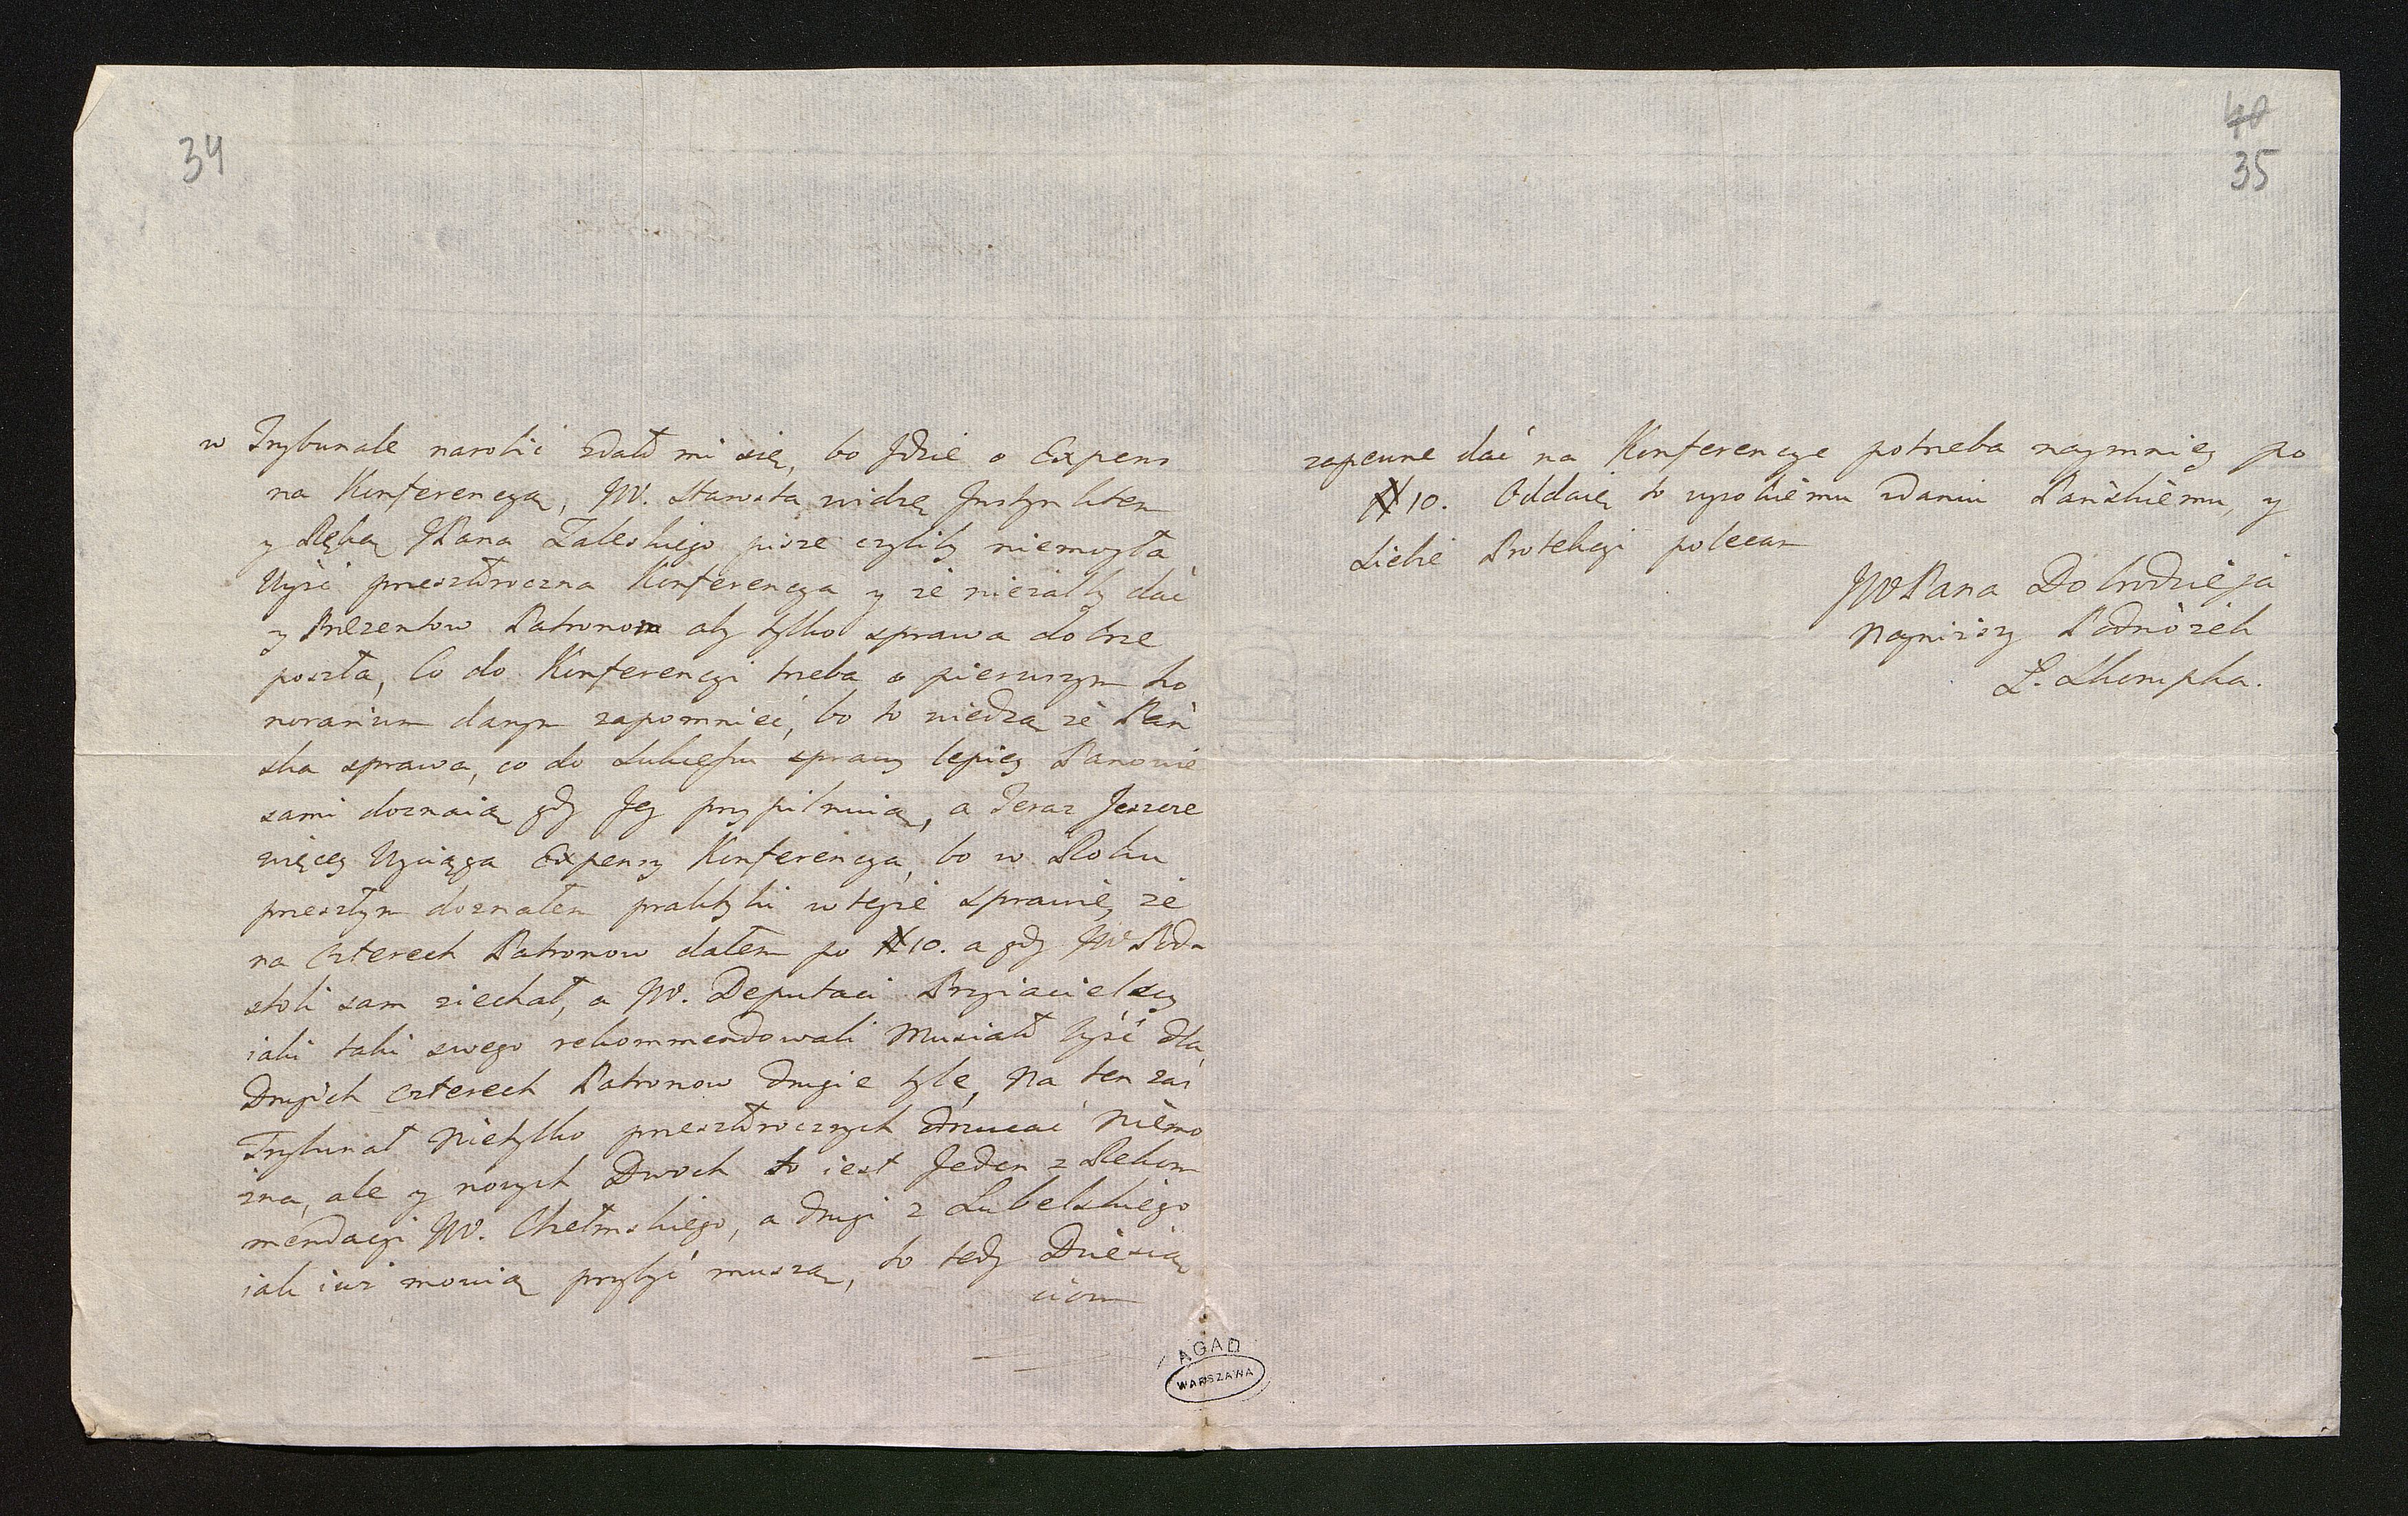 34
w Trybunale narobić zdało mi się, bo Jdzie o Expens
na Konferencyą, JW. Starosta widzę Jnstynktem
y Ręką JPana Zaleskiego pisze czyliby niemogła
Uyść przeszłoroczna Konferencya y że nieżalby dać
y Prezentow Patronom aby tylko sprawa dobrze
poszła, Co do Konferencyi trzeba o pierwszym ho
norarium danym zapomnieć, bo to wiedzą że Pań
ska sprawa, co do Sukcessu sprawy lepiey Panowie
sami doznaią gdy Jey przypilnuią, a Teraz Jeszcze
więcey Wyciąga Expensy Konferencya, bo w Roku
przeszłym doznałem praktyki w teyże sprawie, że
na czterech Patronow dałem po # 10. a gdy JW Pod
stoli sam ziechał, a JW. Deputaci Przyiacielscy
iaki taki swego rekommendowali Musiało bydź dla
Drugich czterech Patronow drugie tyle, Na ten zaś
Trybunał Nietylko przeszłorocznych odrzucać Niemo
żna, ale y nowych Dwoch to iest Jeden z Rekom
mendacyi JW. Chełmskiego, a drugi z Lubelskiego
iak iuż mowią przybyć muszą, to tedy Dziesią
ciom
AGAD
WARSZAWA
40
35
zapewne dać na Konferencye potrzeba naymniey po
# 10. Oddaię to wysokiemu zdaniu Pańskiemu, y
Siebie Protekcyi polecam
JWPana Dobrodzieja
Nayniższy Podnóżek
L. Skompka.